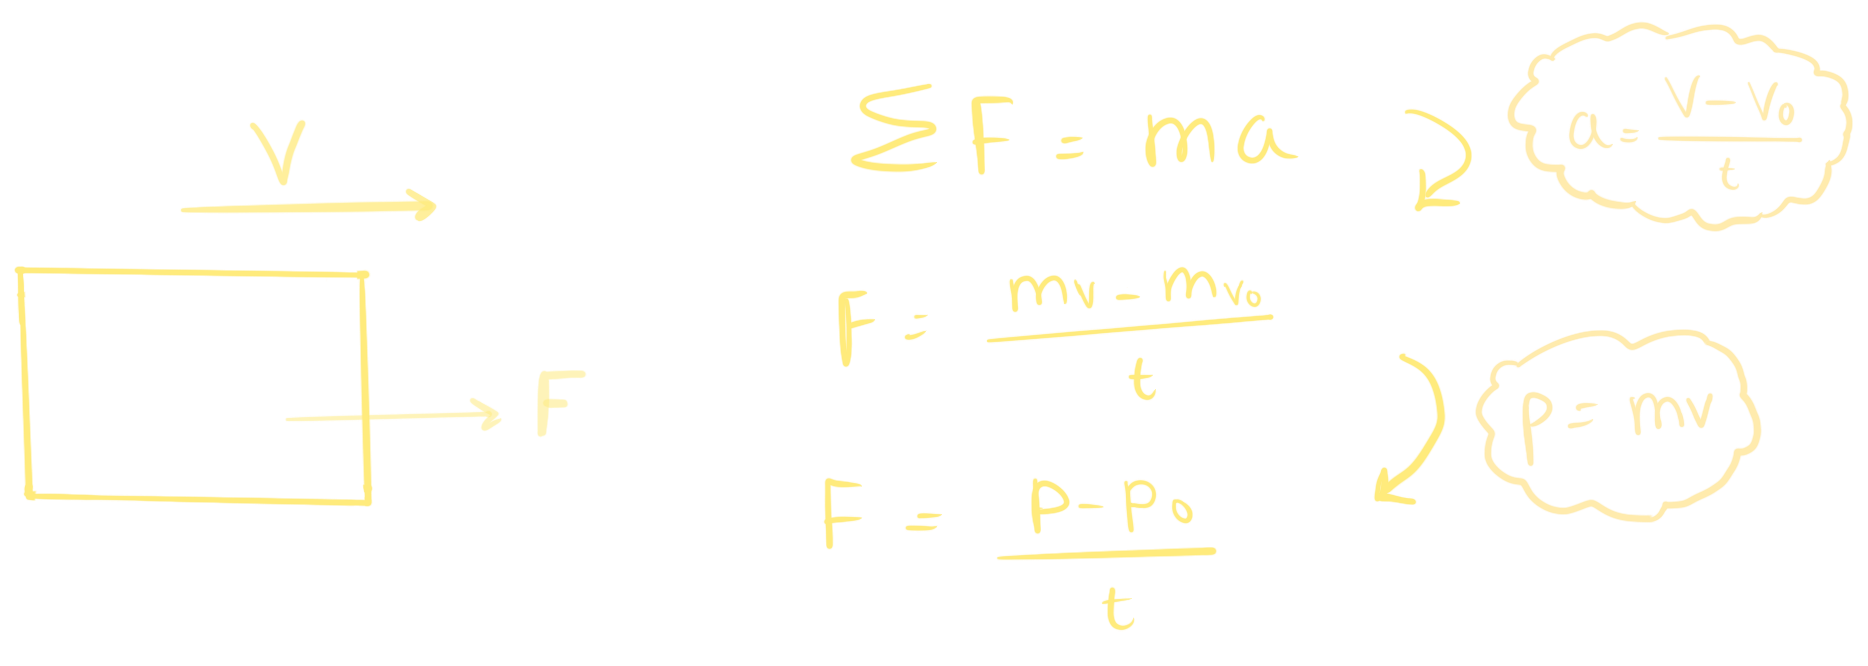 V
F
Σ F = ma
a = (v - v₀)/t
F = (mv - mv₀)/t
p = mv
F = (p - p₀)/t